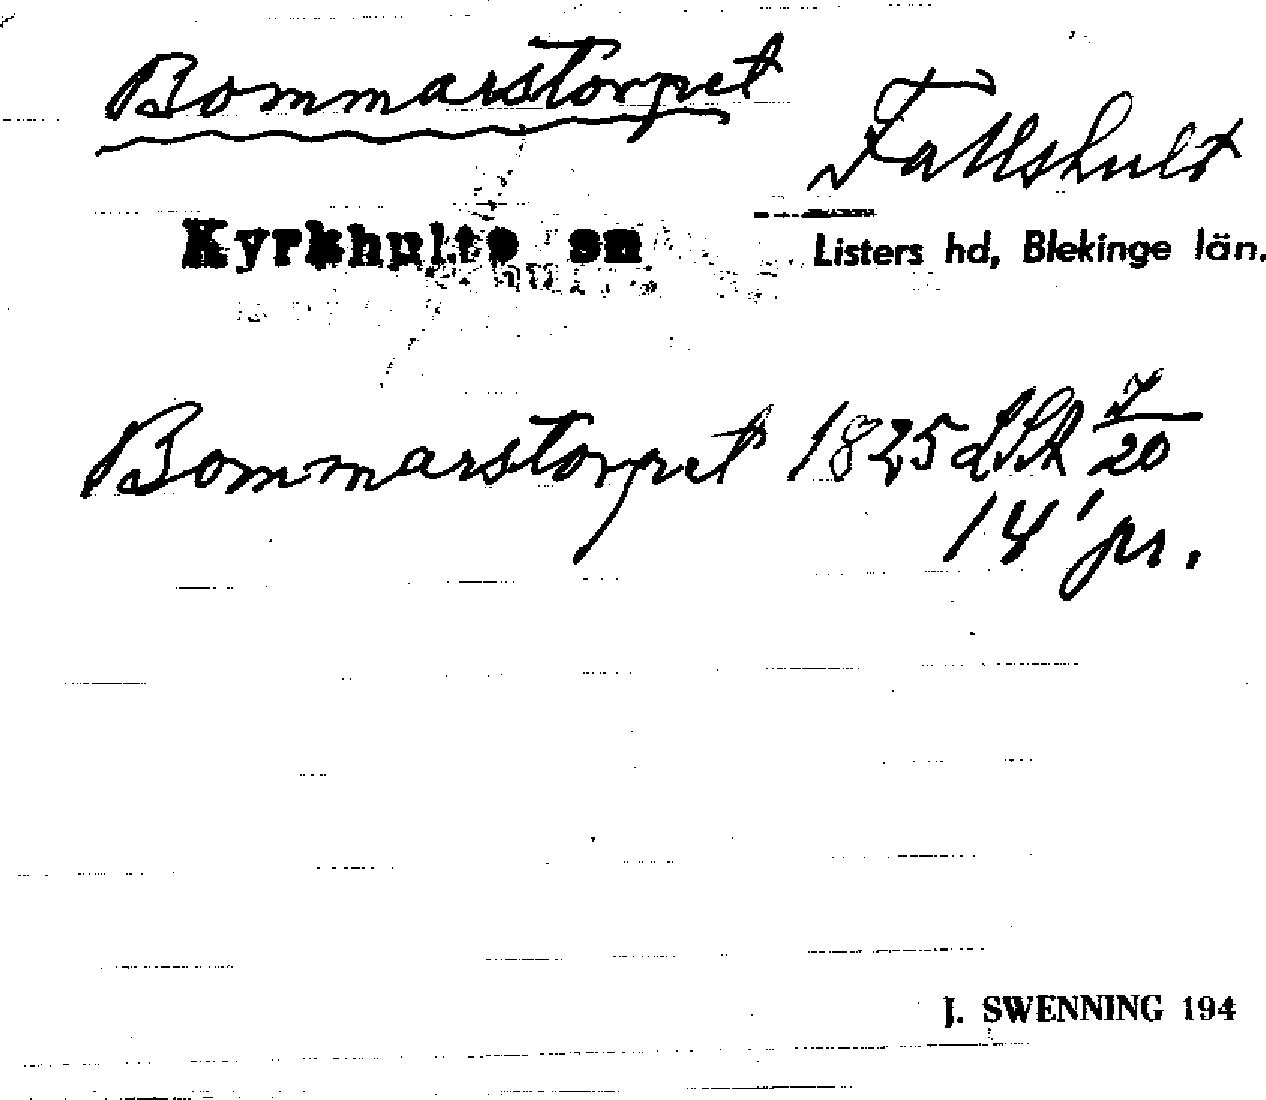 Bommarstorpet
Fallshult
Kyrkhults sn
Listers hd, Blekinge län.
Bommarstorpet 1825 LSk 7/20
14' pr.
J. SWENNING 194